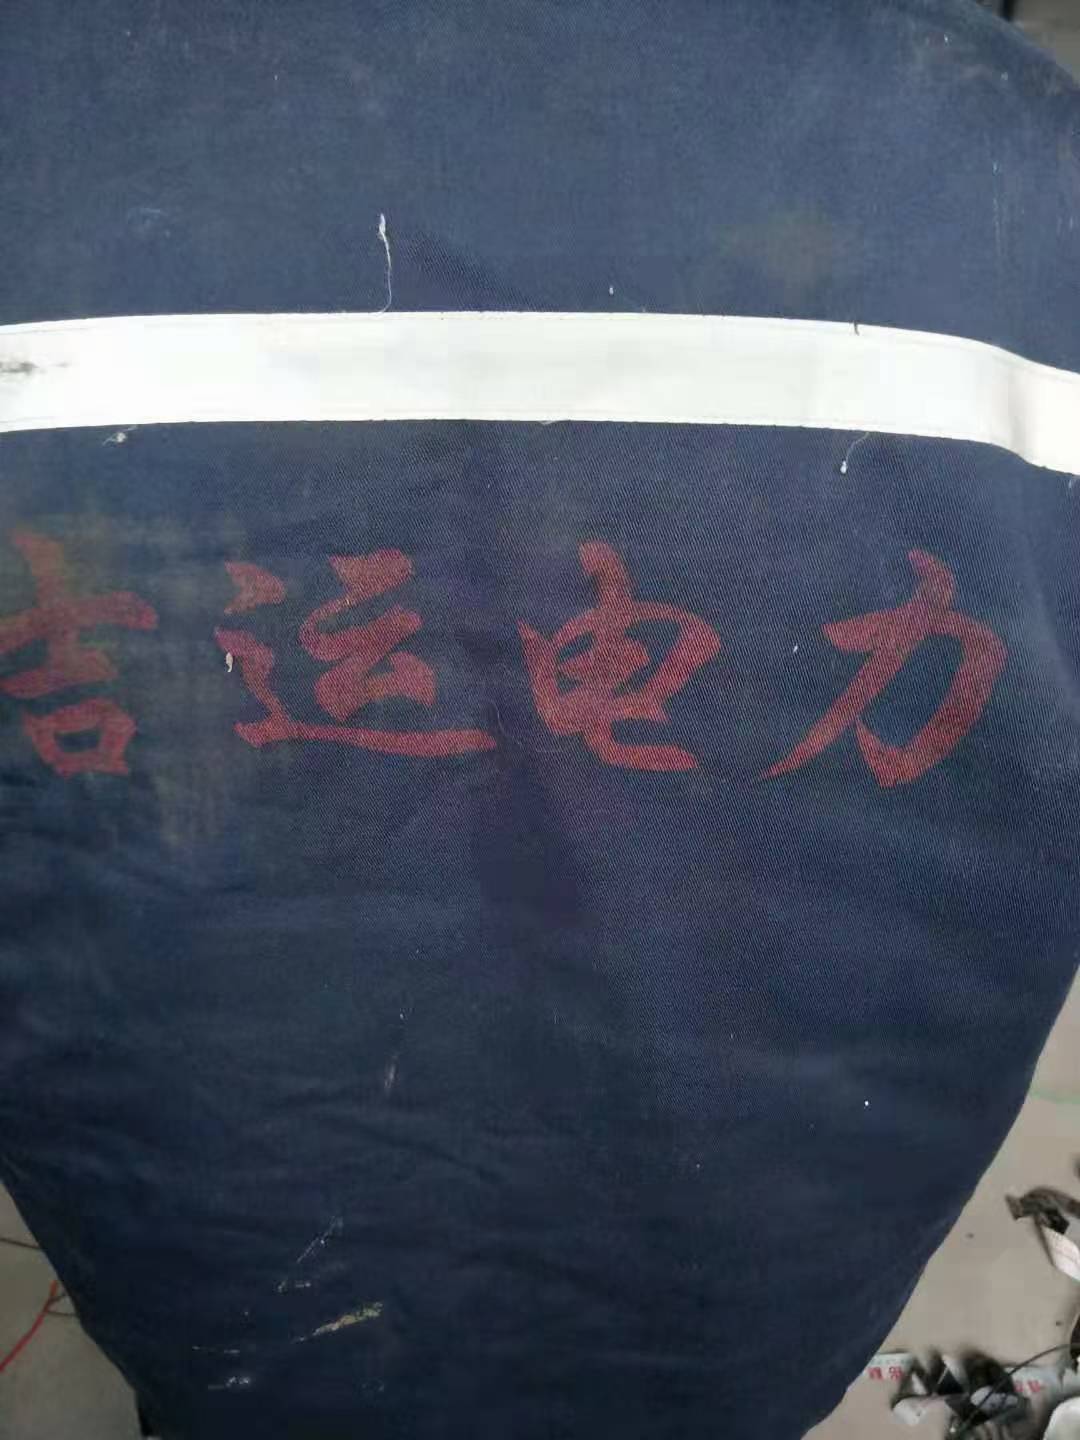 吉运电力